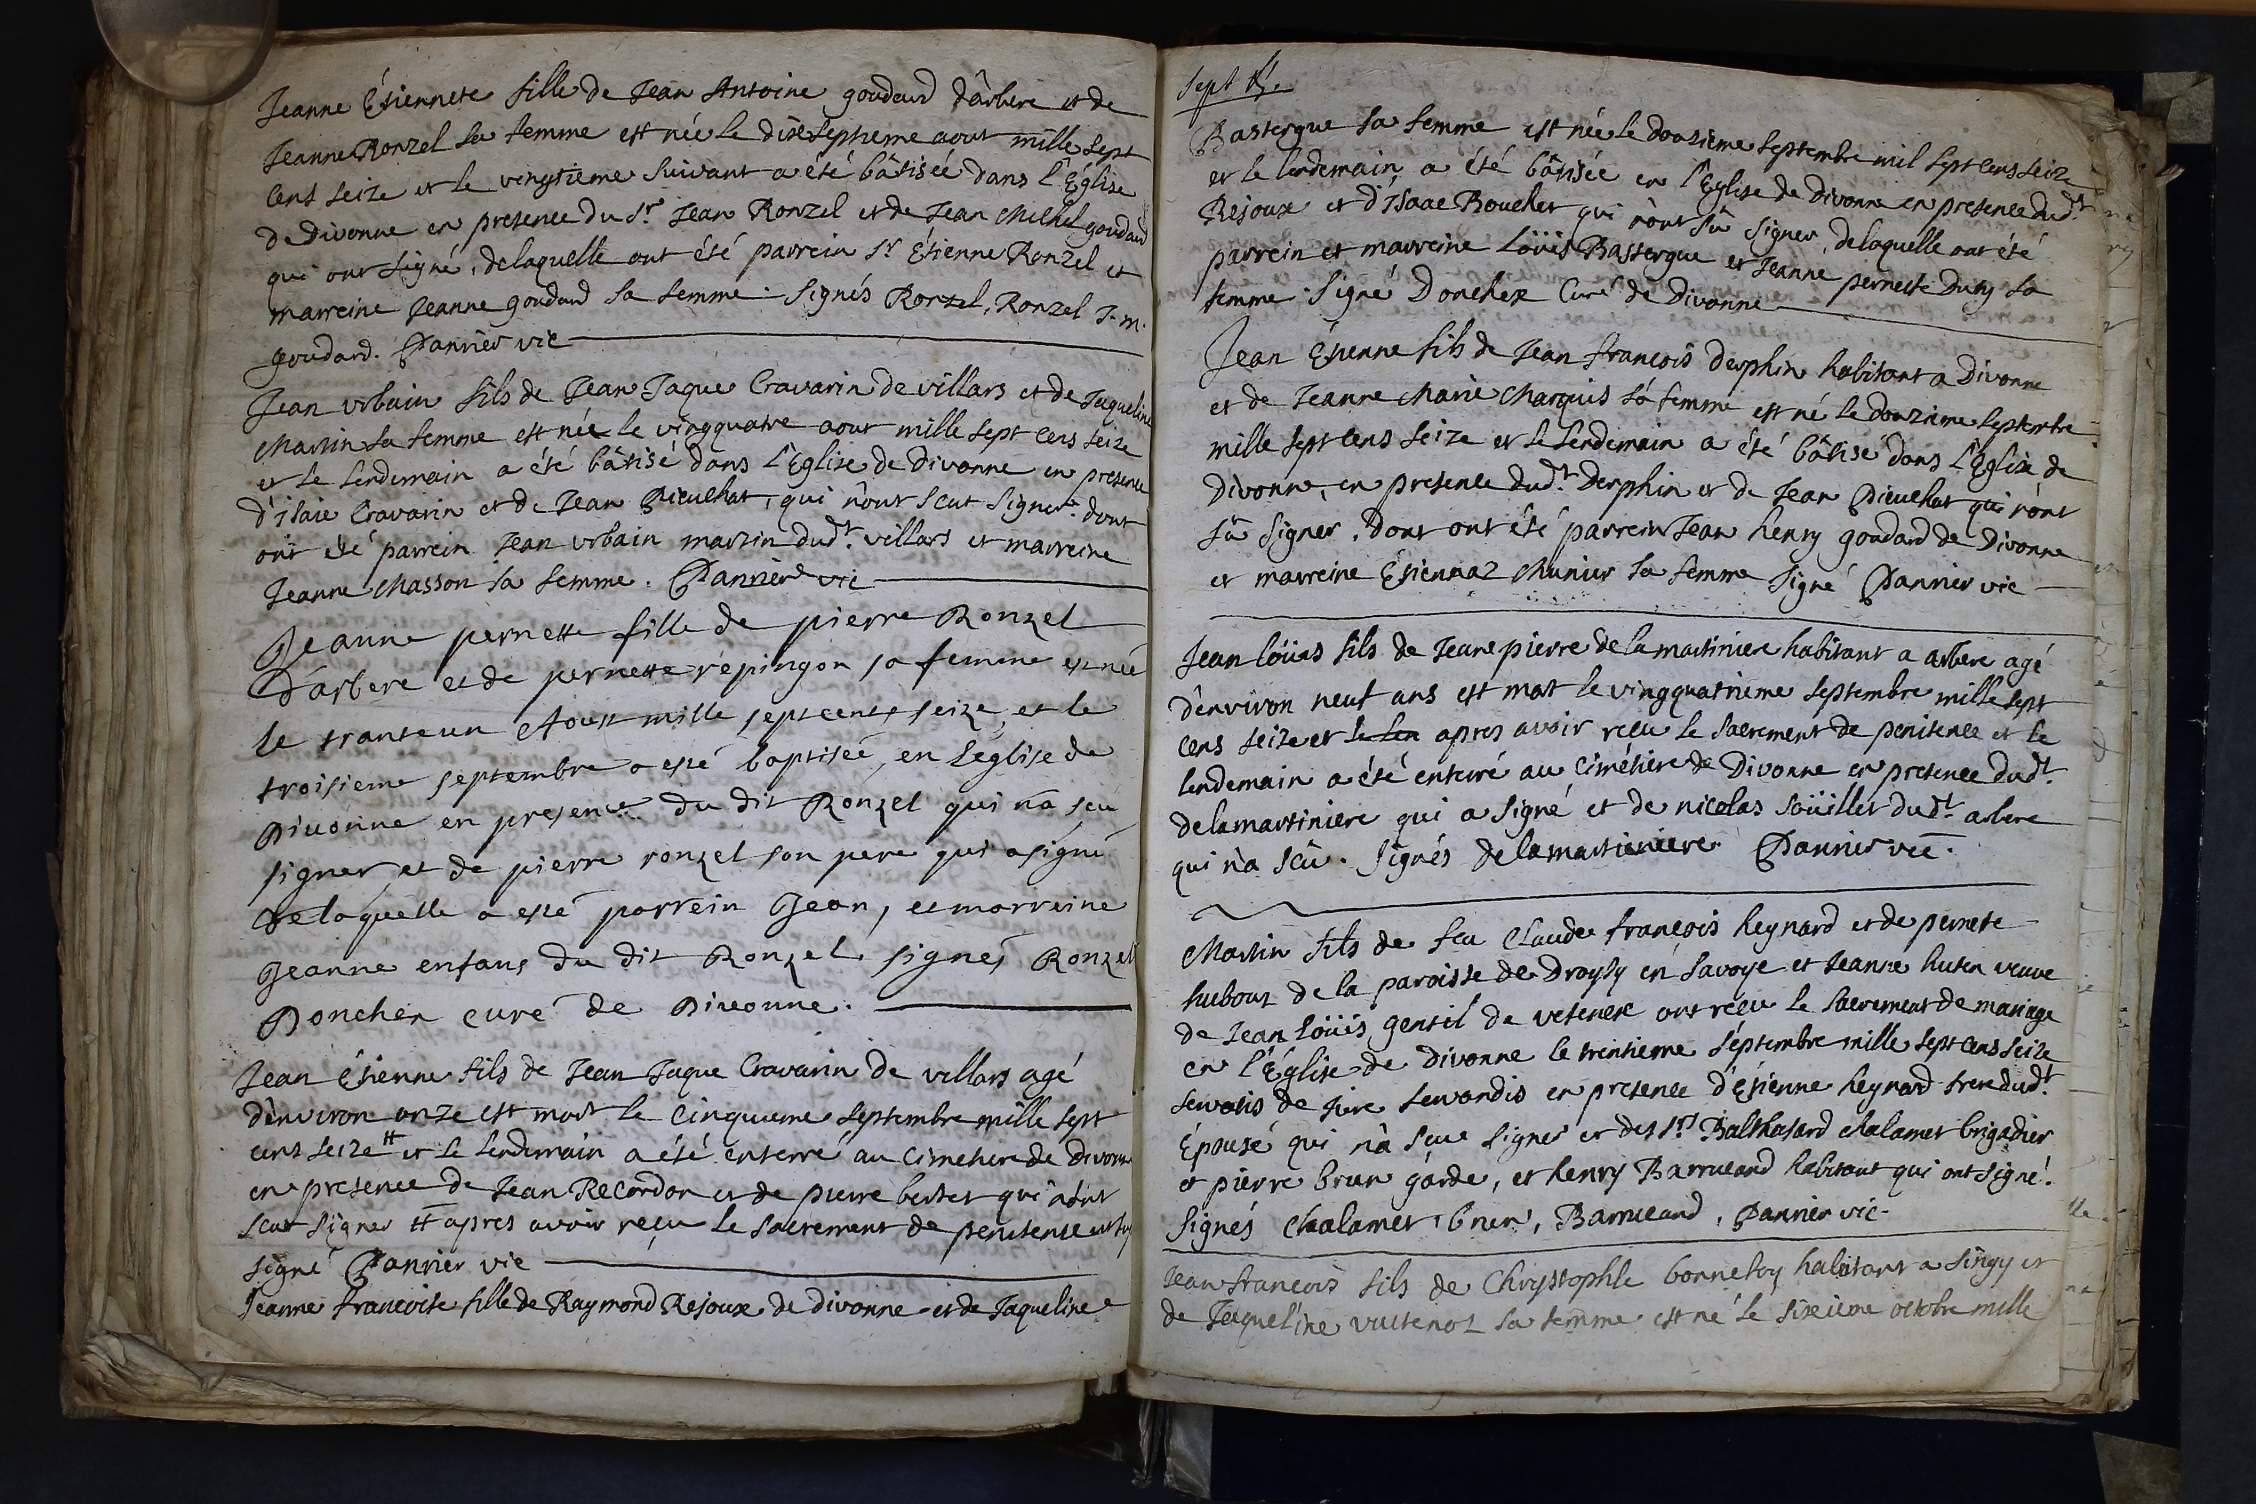 Jeanne Étiennete fille de Jean Antoine goudard d'arbere et de
Jeanne Ronzel sa femme est née le dixseptieme aout mille sept
cens seize et le vingtieme suivant a été bâtisée dans l'Église
de Divonne en presence du Sr. Jean Ronzel et de Jean Michel goudard
qui ont signé, de laquelle ont été parrein Sr Étienne Ronzel et
marreine Jeanne goudard sa femme. Signés Ronzel, Ronzel J. m.
goudard. Pannier vic
Jean urbain fils de Jean Jaque Cravarin de villars et de Jaqueline
Martin sa femme est née le vingquatre aout mille sept cens seize
et le lendemain a été bâtisé dans l'Eglise de Divonne en presence
d'isaie Cravarin et de Jean Dieuchat, qui n'ont sceut signer. dont
ont été parrein Jean urbain martin dudt. villars et marreine
Jeanne Masson sa femme. Pannier vic
Jeanne pernette fille de pierre Ronzel
D'arbere et de pernette répingon sa femme est née
le tranteun Aoust mille septcents seize, et le
troisieme septembre a esté baptisée, en l'église de
Divonne en presence du dit Ronzel qui n'a sçeu
signer, et de pierre ronzel son pere qui a signé
De laquelle a esté parrein Jean, et marreine
Jeanne enfans du dit Ronzel. signés Ronzel
Donchex curé de Divonne.
Jean Étienne fils de Jean Jaque Cravarin de villars agé
d'environ onze est mort le cinquieme septembre mille sept
cens seize # et le lendemain a été enterré au cimetiere de Divonne
en presence de Jean Recordon et de pierre bertet qui n'ont
sceut signer # apres avoir reçu le sacrement de penitense
signé Pannier vic
Jeanne francoise fille de Raymond Rejoux de divonne et de Jaqueline
Sept
Bastergue sa femme est née le douzieme septembre mil sept cens seize
et le lendemain a été bâtisée en l'Eglise de Divonne en presence dudt
Rejoux et d'Isaac Bouchet qui n'ont sû signer, de laquelle ont été
parrein et marreine Loüis Bastergue et Jeanne pernette Duty sa
femme. Signé Donchex Curé de Divonne
Jean Étienne fils de Jean françois Derphin habitant a Divonne
et de Jeanne Marie Marquis sa femme est né le douzieme septembre
mille sept cens seize et le lendemain a été bâtisé dans l'Église de
Divonne, en presence dudt. Derphin et de Jean Dieuchat qui n'ont
sû signer. Dont ont été parrein Jean henry goudard de Divonne
et marreine Étiennaz Munier sa femme signé Pannier vic
Jean loüis fils de Jeanpierre de lamartiniere habitant a arbere agé
d'environ neuf ans est mort le vingquatrieme septembre mille sept
cens seize et le len apres avoir reçeu le sacrement de penitence et le
lendemain a été enterré au cimétiere de Divonne en presence dudt.
delamartiniere qui a signé et de nicolas soüillet dudt. arbere
qui n'a sçû. Signés delamartieniere. Pannier vic.
Martin fils de feu Claude françois heynard et de pernete
hubouz de la paroisse de Droysy en savoye et Jeanne huten veuve
de Jean loüis gentil de vesenex ont reçeu le sacrement de mariage
en l'Église de Divonne le trentieme séptembre mille sept cens seize
servatis de jure servandis en presence d'Étienne heynard frere dudt.
Épousé qui n'a sceu signer et des Srs Balthasard chalamet brigadier
et pierre brun gárde, et henry Barrucand habitant qui ont signé.
Signés Chalamet, brun, Barrucand, Pannier vic.
Jean francois fils de Chrystophle bonnefoy habitant a singy et
de Jaqueline vuitenoz sa femme est né le sixieme octobre mille